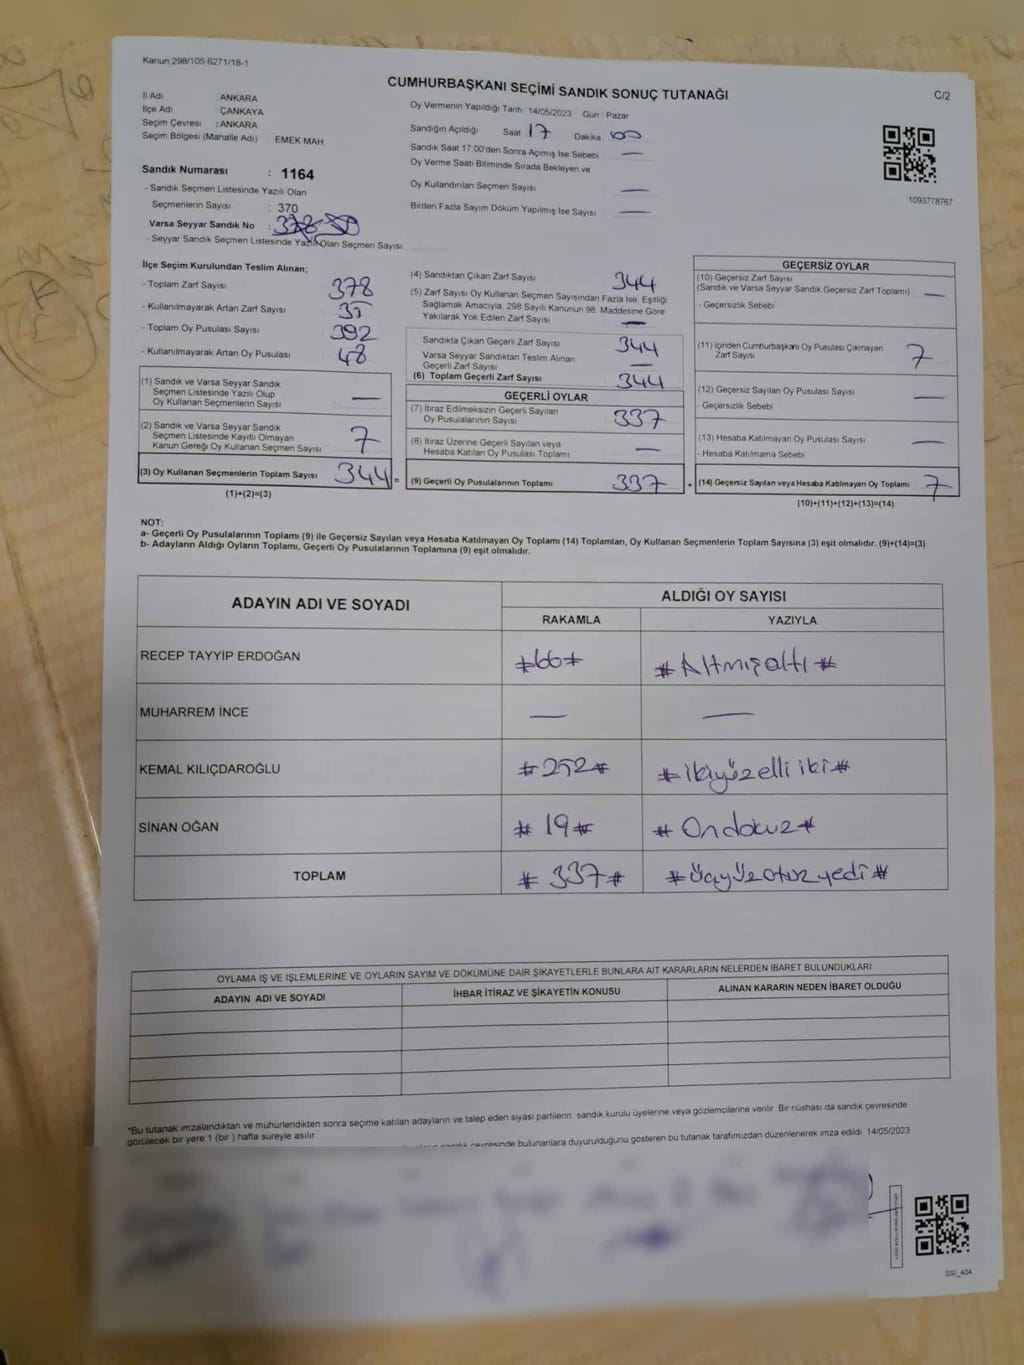 Kanun:298/105 6271/18-1
CUMHURBAŞKANI SEÇİMİ SANDIK SONUÇ TUTANAĞI
C/2
İl Adı ANKARA
İlçe Adı ÇANKAYA
Seçim Çevresi : ANKARA
Seçim Bölgesi (Mahalle Adı) EMEK MAH.
Oy Vermenin Yapıldığı Tarih 14/05/2023 Gün Pazar
Sandığın Açıldığı Saat 17 Dakika 00
Sandık Saat 17:00'den Sonra Açımış İse Sebebi —
Oy Verme Saati Bitiminde Sırada Bekleyen ve
Oy Kullandırılan Seçmen Sayısı —
Birden Fazla Sayım Döküm Yapılmış İse Sayısı —
1093778767
Sandık Numarası : 1164
- Sandık Seçmen Listesinde Yazılı Olan
Seçmenlerin Sayısı : 370
Varsa Seyyar Sandık No :
- Seyyar Sandık Seçmen Listesinde Yazılı Olan Seçmen Sayısı:
İlçe Seçim Kurulundan Teslim Alınan;
- Toplam Zarf Sayısı 378
- Kullanılmayarak Artan Zarf Sayısı
- Toplam Oy Pusulası Sayısı 392
- Kullanılmayarak Artan Oy Pusulası 48
(1) Sandık ve Varsa Seyyar Sandık
Seçmen Listesinde Yazılı Olup
Oy Kullanan Seçmenlerin Sayısı —
(2) Sandık ve Varsa Seyyar Sandık
Seçmen Listesinde Kayıtlı Olmayan
Kanun Gereği Oy Kullanan Seçmen Sayısı 7
(3) Oy Kullanan Seçmenlerin Toplam Sayısı 344
(1)+(2)=(3)
(4) Sandıktan Çıkan Zarf Sayısı 344
(5) Zarf Sayısı Oy Kullanan Seçmen Sayısından Fazla İse, Eşitliği
Sağlamak Amacıyla, 298 Sayılı Kanunun 98. Maddesine Göre
Yakılarak Yok Edilen Zarf Sayısı —
Sandıkta Çıkan Geçerli Zarf Sayısı 344
Varsa Seyyar Sandıktan Teslim Alınan
Geçerli Zarf Sayısı —
(6) Toplam Geçerli Zarf Sayısı 344
GEÇERLİ OYLAR
(7) İtiraz Edilmeksizin Geçerli Sayılan
Oy Pusulalarının Sayısı 337
(8) İtiraz Üzerine Geçerli Sayılan veya
Hesaba Katılan Oy Pusulası Toplamı —
= (9) Geçerli Oy Pusulalarının Toplamı 337
GEÇERSİZ OYLAR
(10) Geçersiz Zarf Sayısı
(Sandık ve Varsa Seyyar Sandık Geçersiz Zarf Toplamı) —
- Geçersizlik Sebebi
(11) İçinden Cumhurbaşkanı Oy Pusulası Çıkmayan
Zarf Sayısı 7
(12) Geçersiz Sayılan Oy Pusulası Sayısı —
- Geçersizlik Sebebi
(13) Hesaba Katılmayan Oy Pusulası Sayısı —
- Hesaba Katılmama Sebebi
+ (14) Geçersiz Sayılan veya Hesaba Katılmayan Oy Toplamı 7
(10)+(11)+(12)+(13)=(14)
NOT:
a- Geçerli Oy Pusulalarının Toplamı (9) ile Geçersiz Sayılan veya Hesaba Katılmayan Oy Toplamı (14) Toplamları, Oy Kullanan Seçmenlerin Toplam Sayısına (3) eşit olmalıdır. (9)+(14)=(3)
b- Adayların Aldığı Oyların Toplamı, Geçerli Oy Pusulalarının Toplamına (9) eşit olmalıdır.
ADAYIN ADI VE SOYADI
ALDIĞI OY SAYISI
RAKAMLA YAZIYLA
RECEP TAYYİP ERDOĞAN #66# #Altmışaltı#
MUHARREM İNCE — —
KEMAL KILIÇDAROĞLU #252# #ikiyüzelli iki#
SİNAN OĞAN #19# #Ondokuz#
TOPLAM #337# #üçyüzotuzyedi#
OYLAMA İŞ VE İŞLEMLERİNE VE OYLARIN SAYIM VE DÖKÜMÜNE DAİR ŞİKAYETLERLE BUNLARA AİT KARARLARIN NELERDEN İBARET BULUNDUKLARI
ADAYIN ADI VE SOYADI İHBAR İTİRAZ VE ŞİKAYETİN KONUSU ALINAN KARARIN NEDEN İBARET OLDUĞU
*Bu tutanak imzalandıktan ve mühürlendikten sonra seçime katılan adayların ve talep eden siyasi partilerin sandık kurulu üyelerine veya gözlemcilerine verilir Bir nüshası da sandık çevresinde
görülecek bir yere 1 (bir ) hafta süreyle asılır
sandık çevresinde bulunanlara duyurulduğunu gösteren bu tutanak tarafımızdan düzenlenerek imza edildi. 14/05/2023
GSI_404